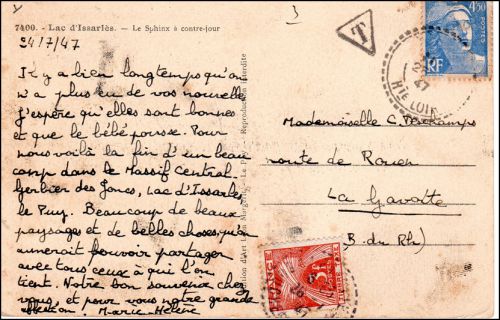 7400. - Lac d'Issarlès. — Le Sphinx à contre-jour
24/7/47
Il y a bien longtemps qu'on
n'a plus eu de vos nouvelles
J'espère qu'elles sont bonnes
et que le bébé pousse. Pour
nous voilà la fin d'un beau
camp dans le Massif Central
Gerbier des Joncs, Lac d'Issarlès
le Puy. Beaucoup de beaux
paysages et de belles choses, qu'on
aimerait pouvoir partager
avec tous ceux à qui l'on
tient. Notre bon souvenir chez
vous, et pour vous notre grande
affection, Marie-Hélène
Reproduction interdite
T
4F50
POSTES
RF
47
HTE LOIRE
Mademoiselle C. Deschamps
route de Rouen
La Gavotte
(B. du Rh)
FRANCE
5F